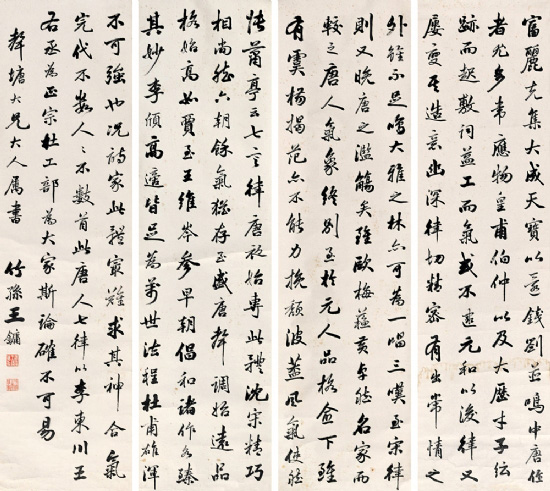 富麗克集大成天寶以還錢劉並鳴中唐作
者尤多韋應物皇甫伯仲以及大歷才子接
跡而起敷詞益工而氣或不逮元和以後律又
屢變其造意幽深律切精密有出常情之
外雖不足鳴大雅之林亦可為一唱三嘆至宋律
則又晚唐之濫觴矣雖歐梅蘇黃卓然名家而
較之唐人氣象終別至於元人品格愈下雖
有虞楊揭范亦不能力挽頹波蓋風氣使然
蕭亭云七言律唐初始專此體沈宋精巧
相尚然六朝餘氣猶存至盛唐聲調始遠品
格始高如賈至王維岑參早朝倡和諸作各臻
其妙李頎高適皆足為萬世法程杜甫雄渾
不可強也況詩家此體最難求其神合氣
完代不數人人不數首此唐人七律以李東川王
右丞為正宗杜工部為大家斯論確不可易
塘大兄大人屬書
竹孫王鏞